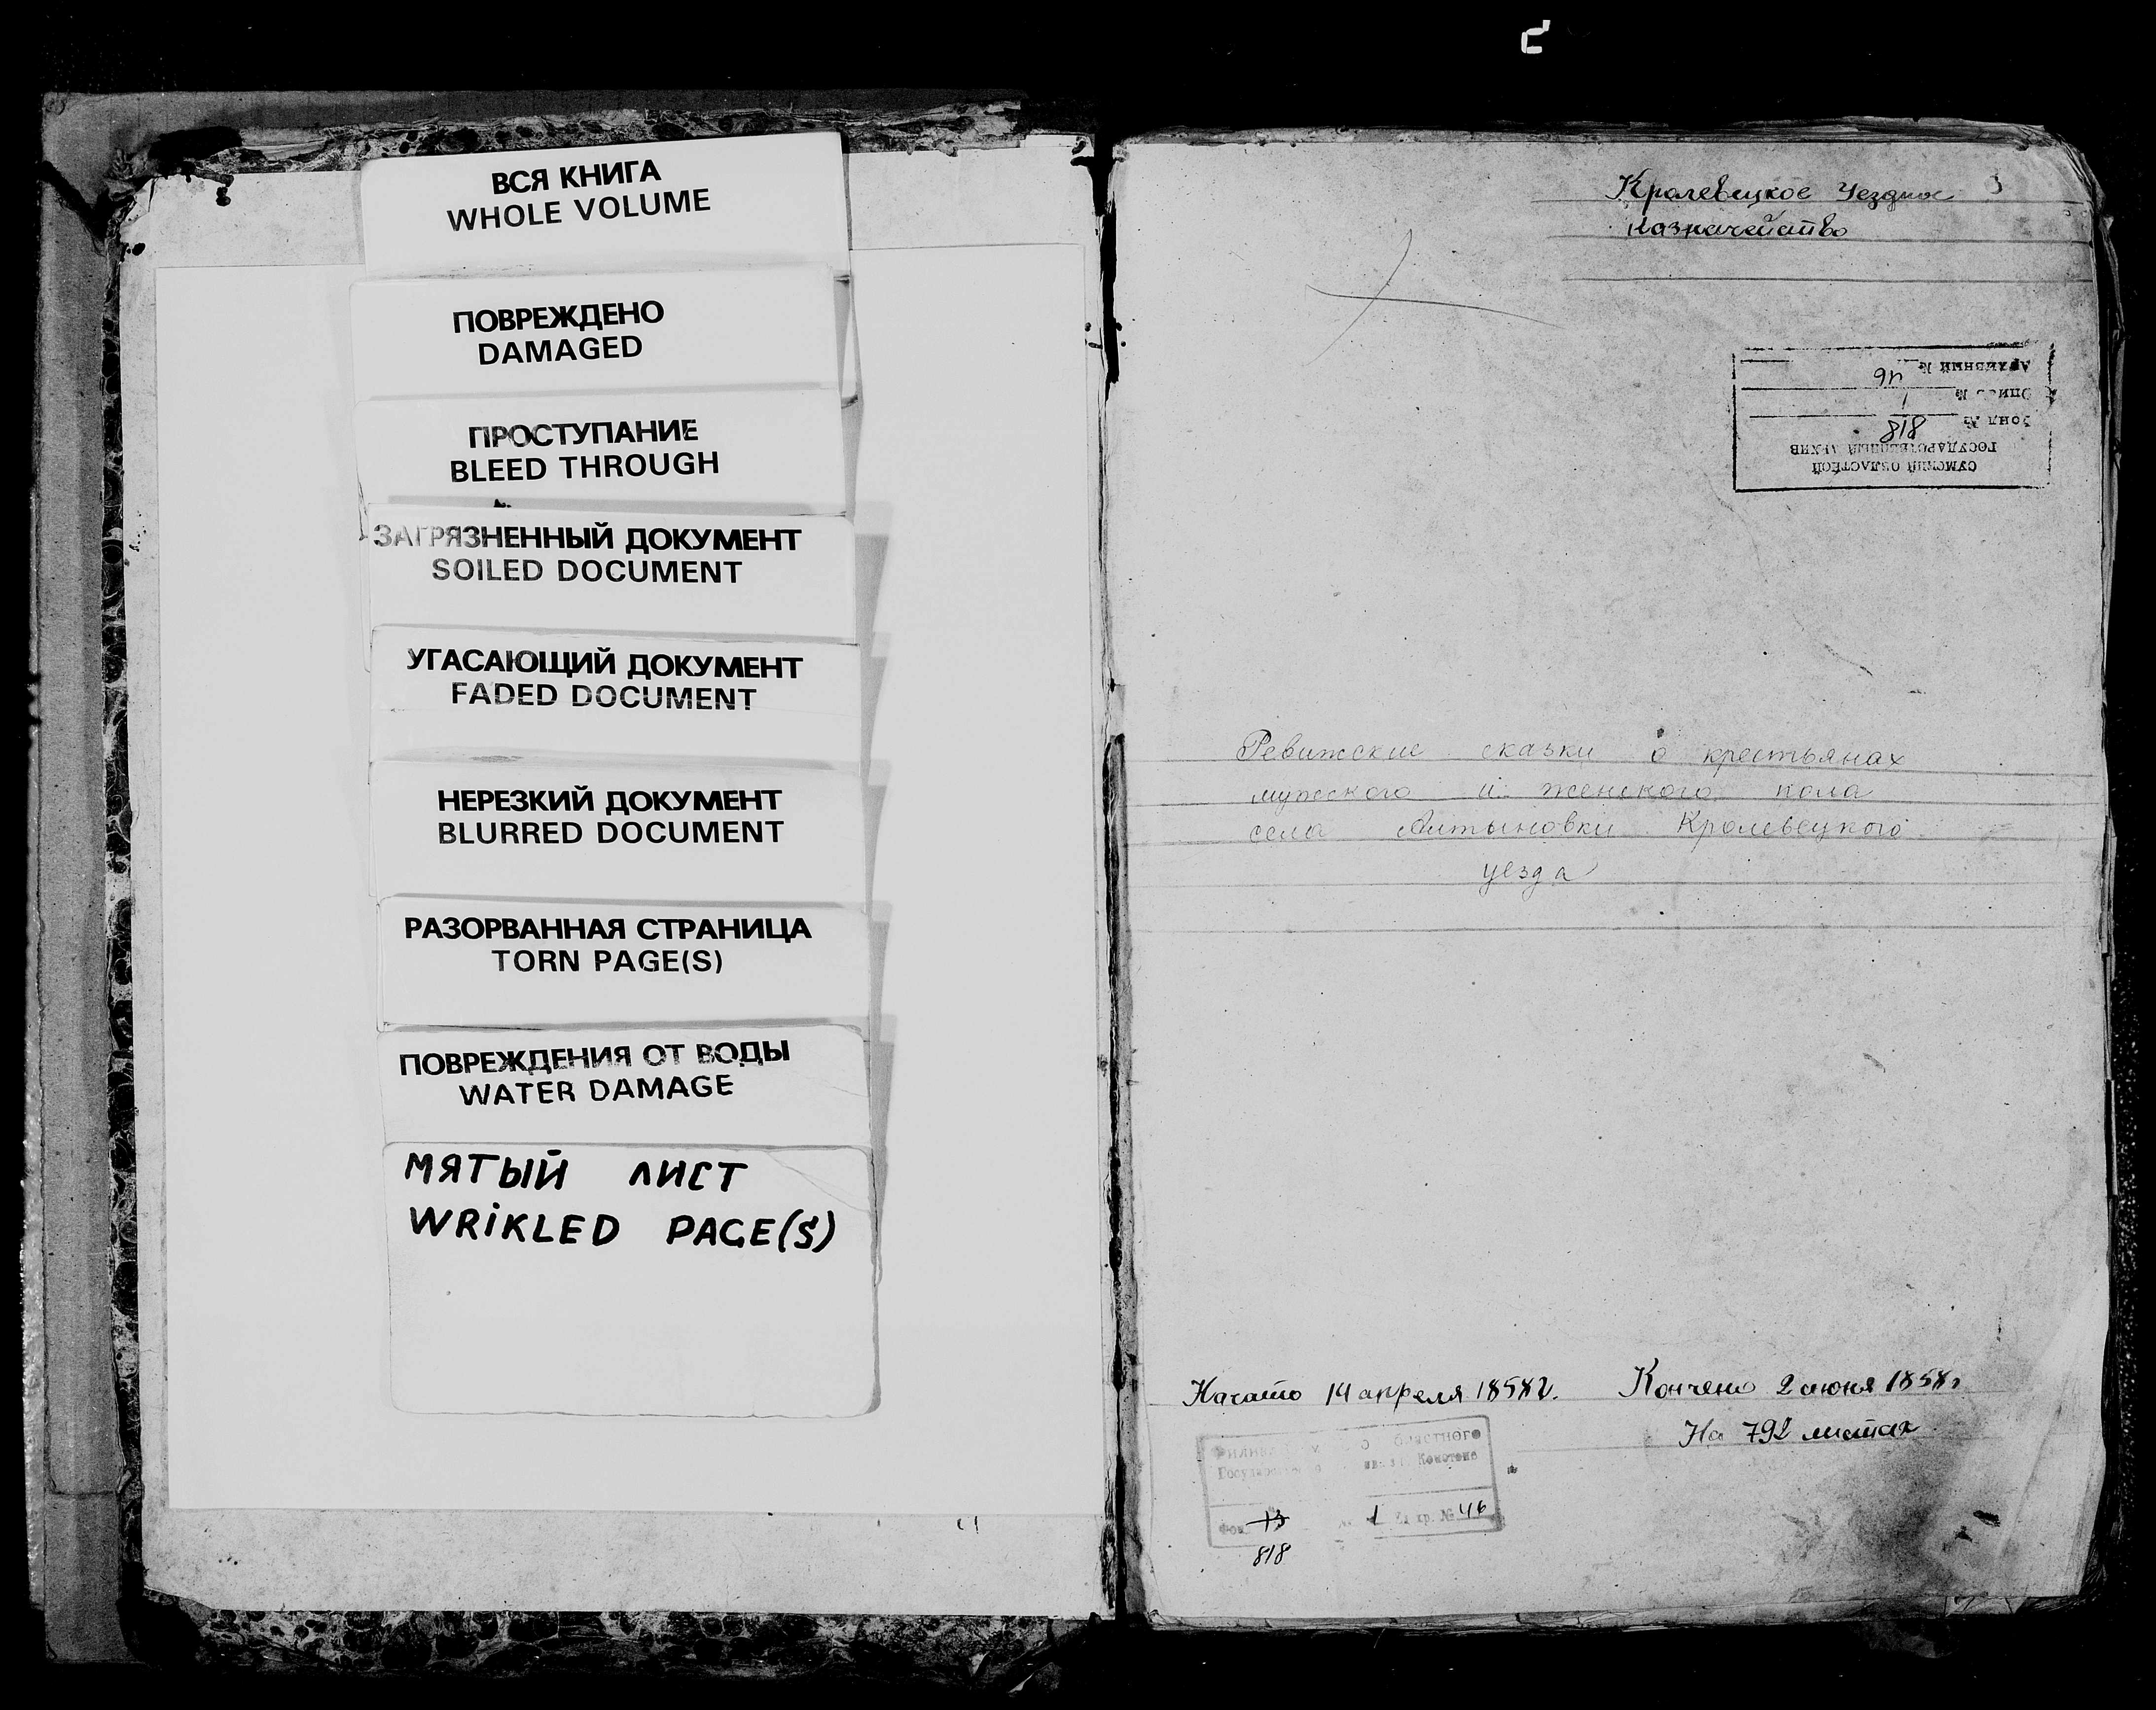 ВСЯ КНИГА
WHOLE VOLUME
ПОВРЕЖДЕНО
DAMAGED
ПРОСТУПАНИЕ
BLEED THROUGH
ЗАГРЯЗНЕННЫЙ ДОКУМЕНТ
SOILED DOCUMENT
УГАСАЮЩИЙ ДОКУМЕНТ
FADED DOCUMENT
НЕРЕЗКИЙ ДОКУМЕНТ
BLURRED DOCUMENT
РАЗОРВАННАЯ СТРАНИЦА
TORN PAGE(S)
ПОВРЕЖДЕНИЯ ОТ ВОДЫ
WATER DAMAGE
МЯТЫЙ ЛИСТ
WRIKLED PAGE(S)
Кролевецкое Уездное
Казначейство
СУМСКИЙ ОБЛАСТНОЙ
ГОСУДАРСТВЕННЫЙ АРХИВ
Фонд № 818
Опись № 1
Архивный № 46
Ревижские сказки о крестьянах
мужского и женского пола
села Алтыновки Кролевецкого
уезда
Начато 14 апреля 1858 г.
Кончено 2 июня 1858 г
На 792 листах
Филиал областного
Конотопе
Фонд 13 1 Ед. хр. № 46
818